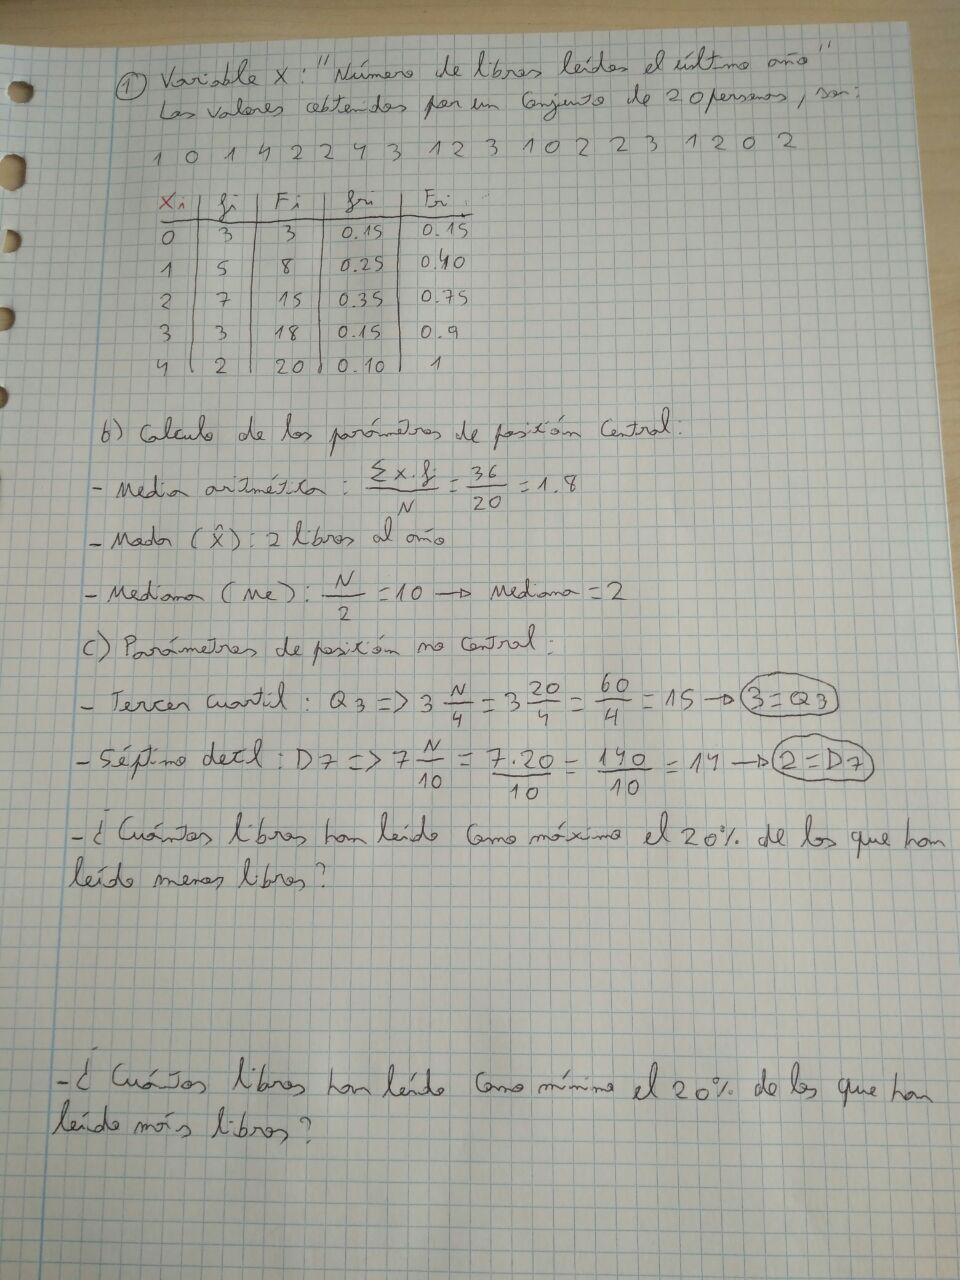 1) Variable X: "Número de libros leídos el último año"
Los valores obtenidos por un conjunto de 20 personas, son:
1 0 1 4 2 2 4 3 1 2 3 1 0 2 2 3 1 2 0 2
Xi fi Fi fri Fri
0 3 3 0.15 0.15
1 5 8 0.25 0.40
2 7 15 0.35 0.75
3 3 18 0.15 0.9
4 2 20 0.10 1
b) Calculo de los parámetros de posición central:
- Media aritmética: Σx·fi/N = 36/20 = 1.8
- Moda (x̂): 2 libros al año
- Mediana (Me): N/2 = 10 → Mediana = 2
c) Parámetros de posición no central:
- Tercer cuartil: Q3 => 3 N/4 = 3 20/4 = 60/4 = 15 → 3 = Q3
- Séptimo decil: D7 => 7 N/10 = 7·20/10 = 140/10 = 14 → 2 = D7
- ¿Cuántos libros han leído como máximo el 20% de los que han
leído menos libros?
- ¿Cuántos libros han leído como mínimo el 20% de los que han
leído más libros?